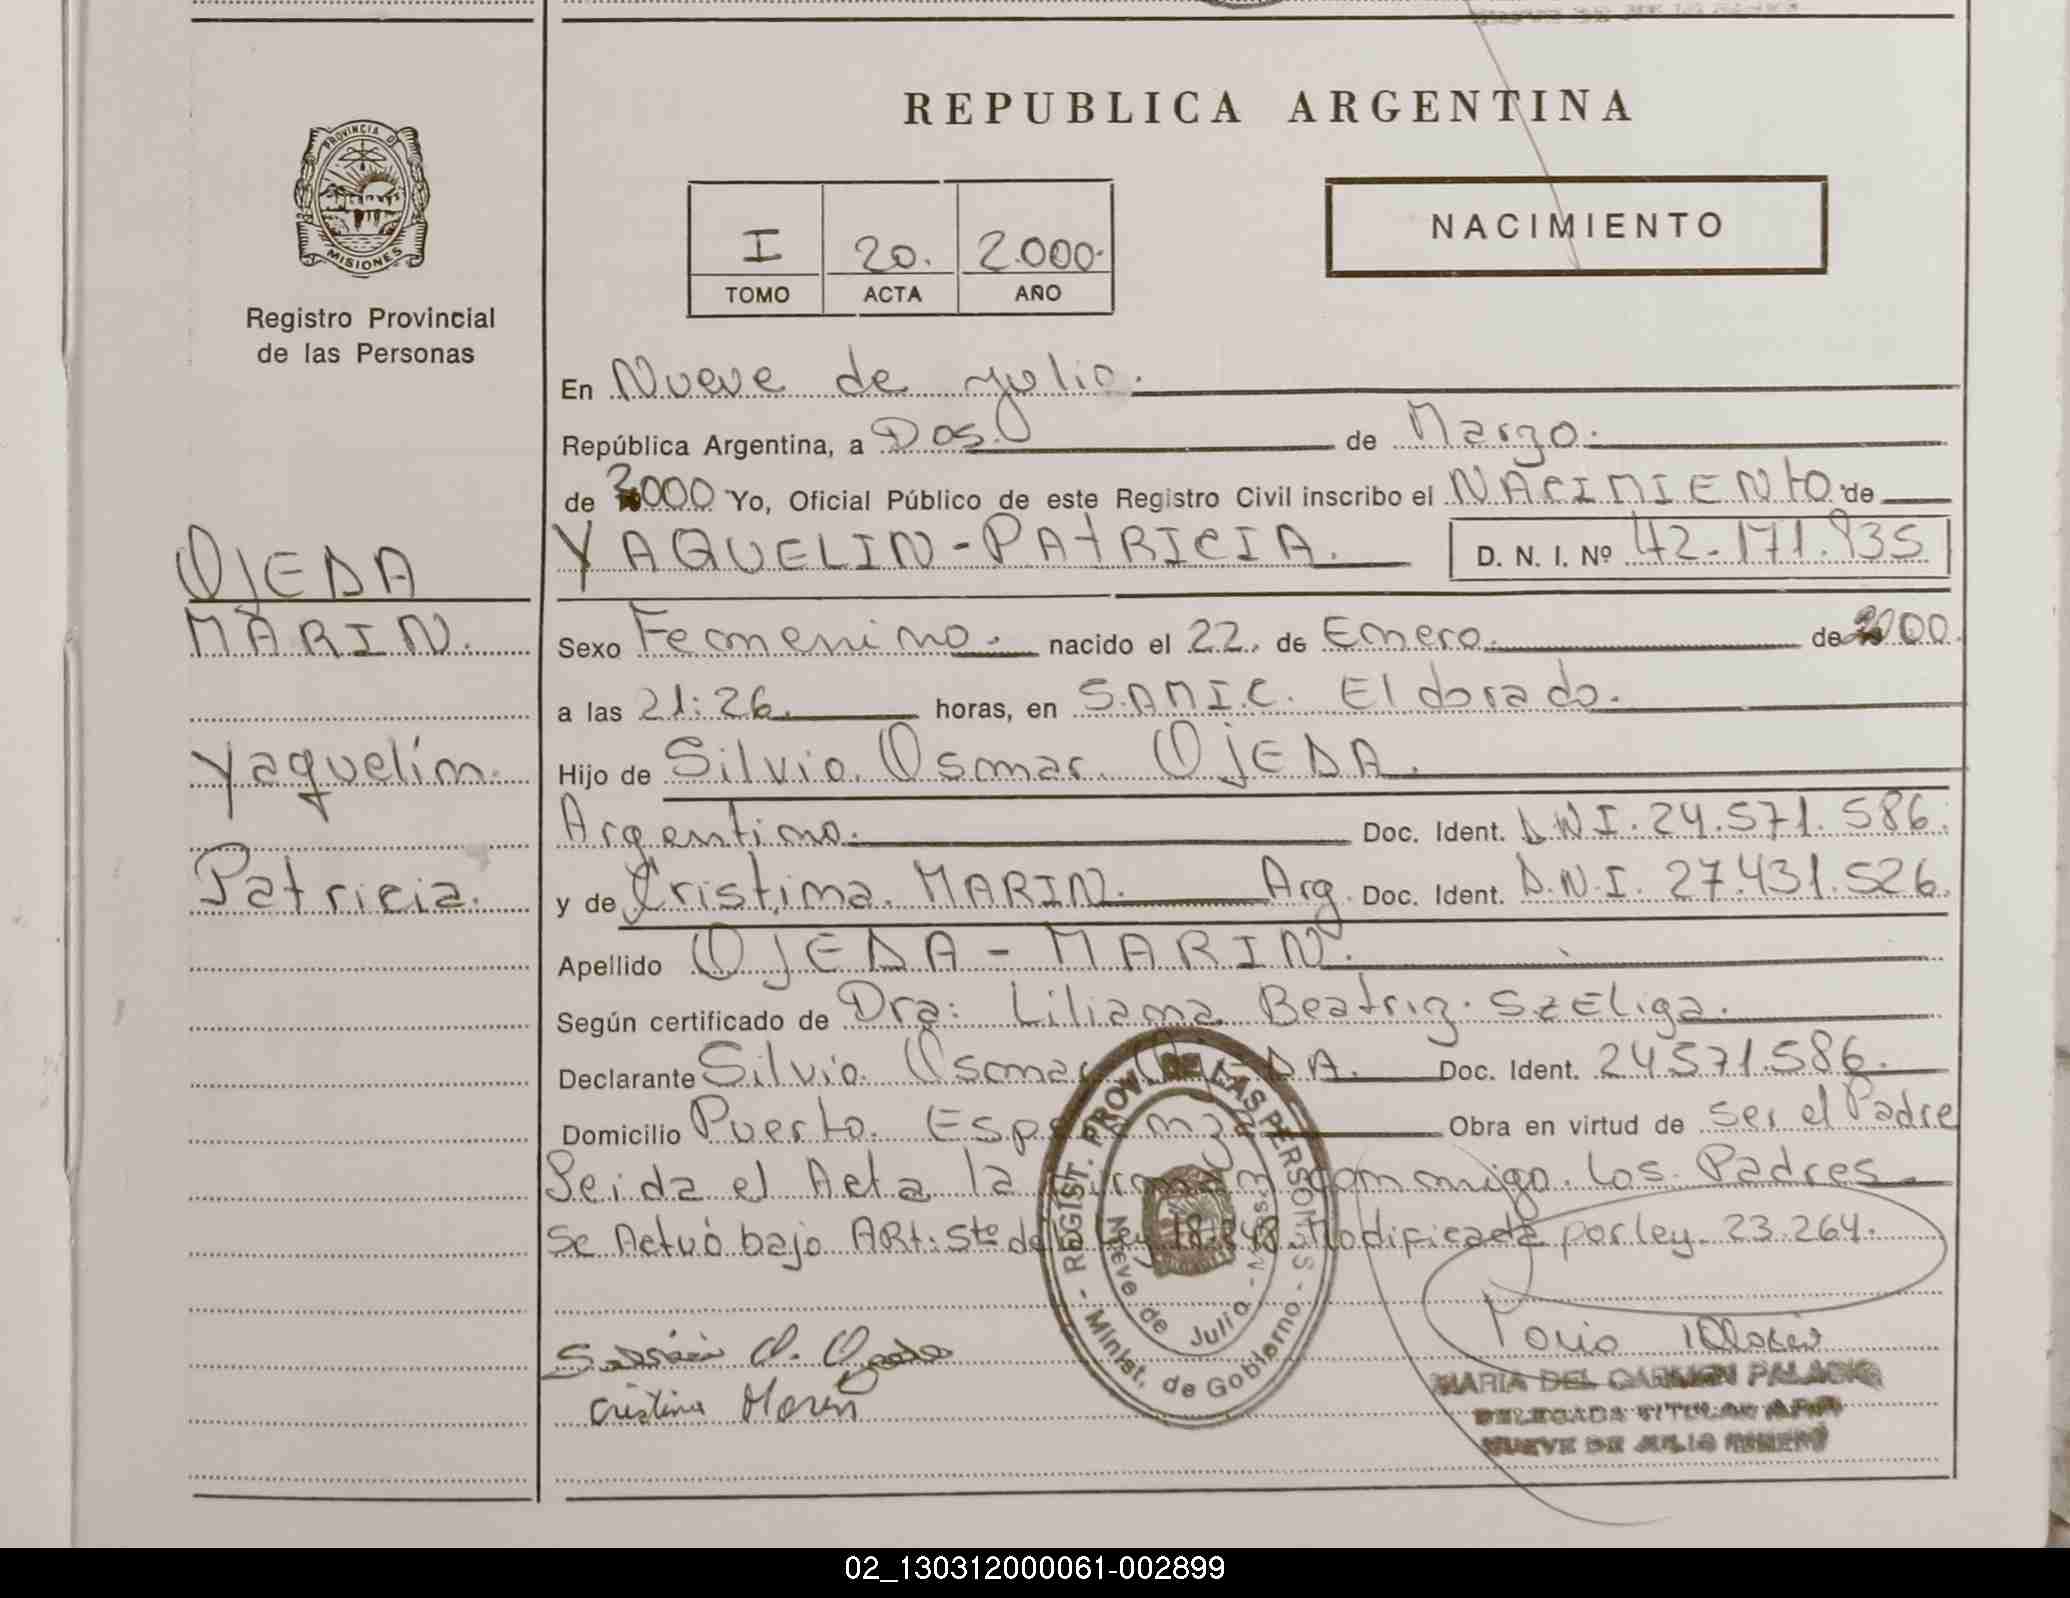 REPUBLICA ARGENTINA
PROVINCIA DE
MISIONES
Registro Provincial
de las Personas
I 20. 2.000.
TOMO ACTA AÑO
NACIMIENTO
En Nueve de julio.
República Argentina, a Dos. de Marzo.
de 2000 Yo, Oficial Público de este Registro Civil inscribo el NACIMIENTO de
YAQUELIN-PATRICIA. D. N. I. Nº 42.171.935
OJEDA
MARIN.
Yaquelín
Patricia.
Sexo Femenino. nacido el 22. de Enero. de 2000.
a las 21:26. horas, en S.A.M.I.C. Eldorado.
Hijo de Silvio Osmar OJEDA.
Argentino. Doc. Ident. D.N.I. 24.571.586.
y de Cristina MARIN. Arg. Doc. Ident. D.N.I. 27.431.526.
Apellido OJEDA - MARIN.
Según certificado de Dra: Liliana Beatriz SzEliga.
Declarante Silvio Osmar OJEDA. Doc. Ident. 24571.586.
Domicilio Puerto Esperanza Obra en virtud de ser el Padre
Leida el Acta la firman conmigo los Padres.
Se Actuó bajo ARt. 5to de la Ley 18.248 Modificada por ley 23.264.
REGIST. PROV. DE LAS PERSONAS
- Minist. de Gobierno -
Nueve de Julio - Misiones
Cristina Marin
MARIA DEL CARMEN PALACIO
DELEGADA TITULAR
NUEVE DE JULIO
02_130312000061-002899